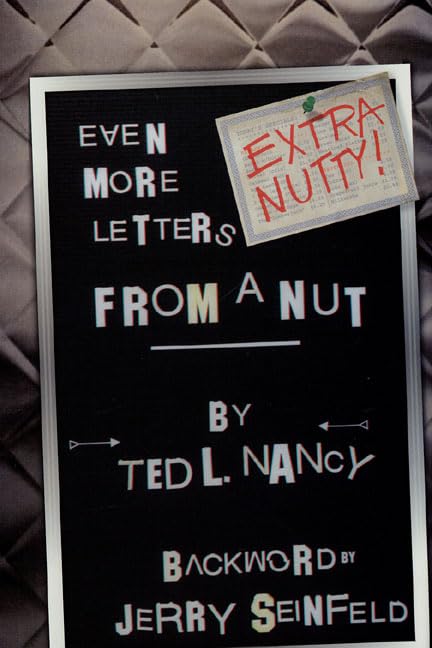 EVEN
MORE
LETTERS
FROM A NUT
EXTRA
NUTTY!
BY
TED L. NANCY
BACKWORD BY
JERRY SEINFELD